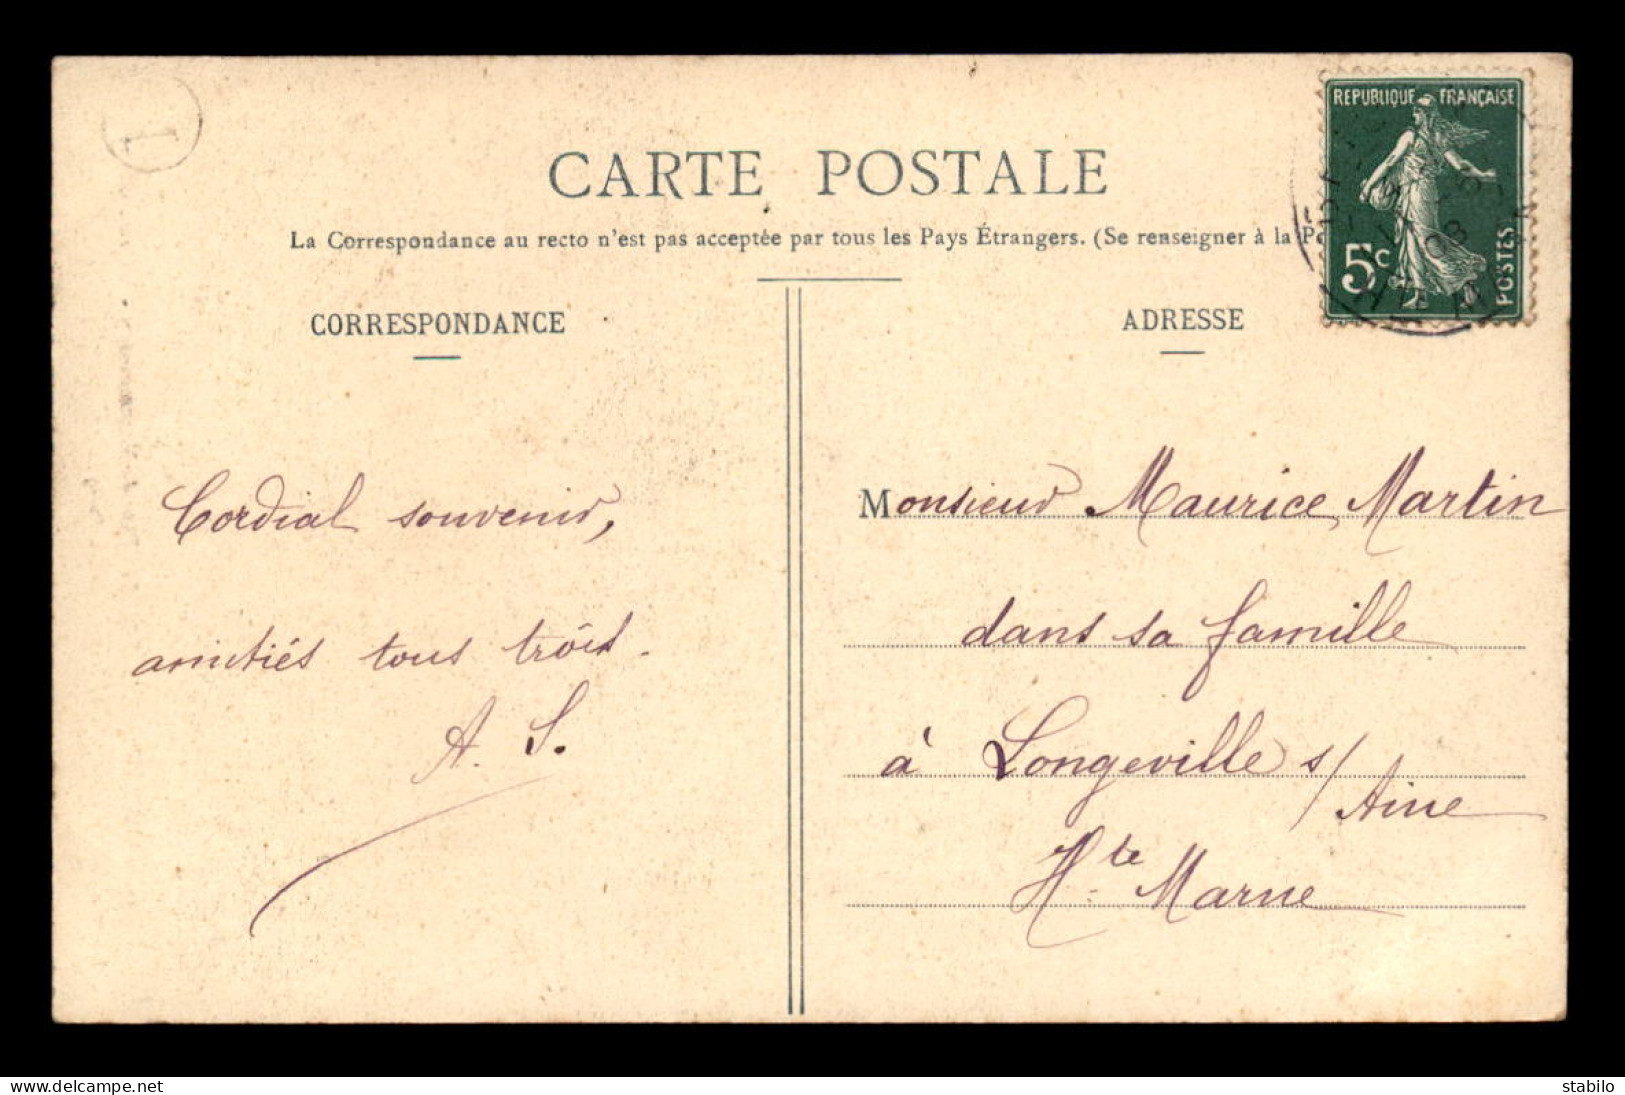 CARTE POSTALE
La Correspondance au recto n'est pas acceptée par tous les Pays Étrangers. (Se renseigner à la
REPUBLIQUE FRANÇAISE
5c
POSTES
CORRESPONDANCE
ADRESSE
Cordial souvenir,
amitiés tous trois.
A. S.
Monsieur Maurice Martin
dans sa famille
à Longeville s/
Aine
Hte Marne
1
www.delcampe.net
stabilo